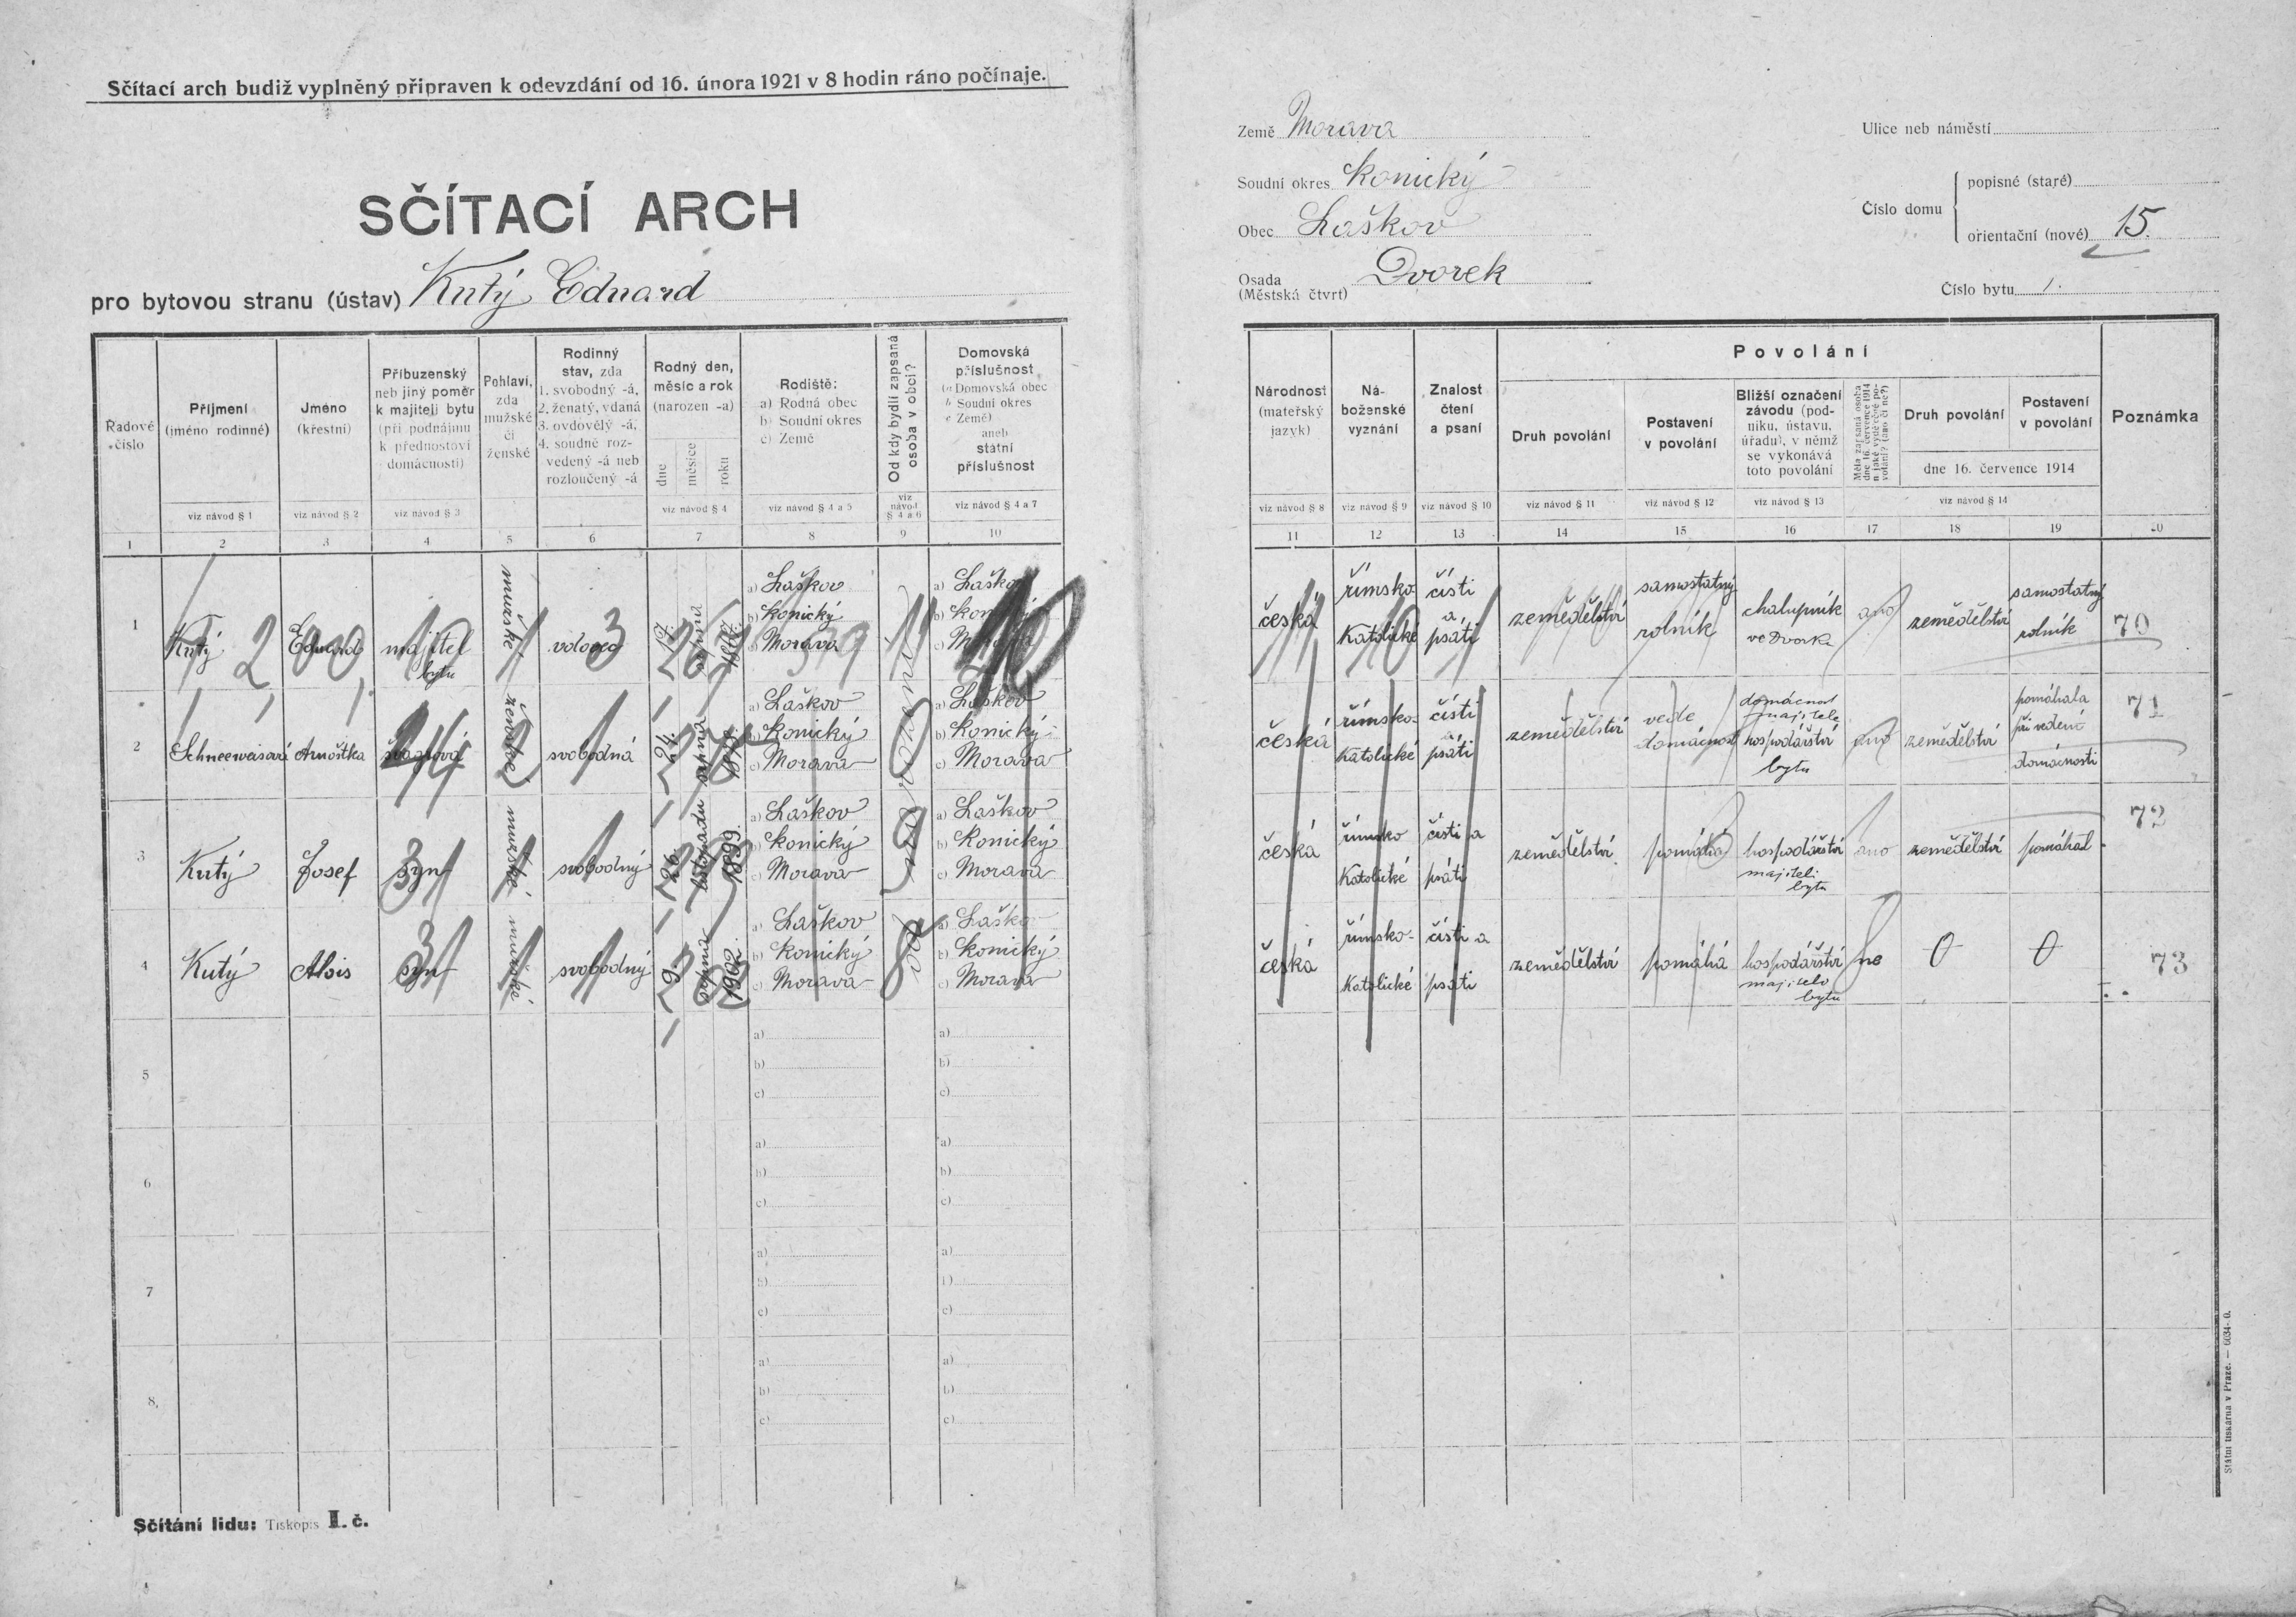 Sčítací arch budiž vyplněný připraven k odevzdání od 16. února 1921 v 8 hodin ráno počínaje.
SČÍTACÍ ARCH
pro bytovou stranu (ústav) Kutý Eduard
Řadové číslo
Příjmení (jméno rodinné)
Jméno (křestní)
Příbuzenský neb jiný poměr k majiteli bytu (při podnájmu k přednostovi domácnosti)
Pohlaví, zda mužské či ženské
Rodinný stav, zda 1. svobodný -á, 2. ženatý, vdaná 3. ovdovělý -á, 4. soudně rozvedený -á neb rozloučený -á
Rodný den, měsíc a rok (narozen -a)
dne měsíce roku
Rodiště: a) Rodná obec b) Soudní okres c) Země
Od kdy bydlí zapsaná osoba v obci?
Domovská příslušnost (a Domovská obec b Soudní okres c Země) aneb státní příslušnost
viz návod § 1 viz návod § 2 viz návod § 3 viz návod § 4 viz návod § 4 a 5 viz návod § 4 a 6 viz návod § 4 a 7
1 2 3 4 5 6 7 8 9 10
1 Kutý Eduard majitel bytu mužské 3 17. srpna
a) Laškov b) Konický c) Morava
a) Laškov b) Konický c) Morava
2 Schneeweisová Arnoštka švagrová ženské svobodná 24. srpna
a) Laškov b) Konický c) Morava
od narození
a) Laškov b) Konický c) Morava
3 Kutý Josef syn mužské svobodný 26. listopadu 1899.
a) Laškov b) Konický c) Morava
a) Laškov b) Konický c) Morava
4 Kutý Alois syn mužské svobodný 9. srpna 1902.
a) Laškov b) Konický c) Morava
a) Laškov b) Konický c) Morava
5 a) b) c) a) b) c)
6 a) b) c) a) b) c)
7 a) b) c) a) b) c)
8. a) b) c) a) b) c)
Sčítání lidu: Tiskopis II. č.
Země Morava
Soudní okres Konický
Obec Laškov
Osada (Městská čtvrť) Dvorek
Ulice neb náměstí
Číslo domu
popisné (staré)
orientační (nové) 15.
Číslo bytu 1.
Národnost (mateřský jazyk)
Náboženské vyznání
Znalost čtení a psaní
Povolání
Druh povolání
Postavení v povolání
Bližší označení závodu (podniku, ústavu, úřadu), v němž se vykonává toto povolání
Měla zapsaná osoba dne 16. července 1914 nějaké výdělečné povolání? (ano či ne?)
Druh povolání
Postavení v povolání
dne 16. července 1914
Poznámka
viz návod § 8 viz návod § 9 viz návod § 10 viz návod § 11 viz návod § 12 viz návod § 13 viz návod § 14
11 12 13 14 15 16 17 18 19 20
česká římsko katolické čísti a psáti zemědělství samostatný rolník chalupník ve Dvorku ano zemědělství samostatný rolník 70
česká římsko-katolické čísti a psáti zemědělství vede domácnost domácnost majitele hospodářství bytu ano zemědělství pomáhala při vedení domácnosti 71
česká římsko katolické čísti a psáti zemědělství pomáhá hospodářství majiteli bytu ano zemědělství pomáhal 72
česká římsko-katolické čísti a psáti zemědělství pomáhá hospodářství majitele bytu ne 0 0 73
Státní tiskárna v Praze. — 6634-0.